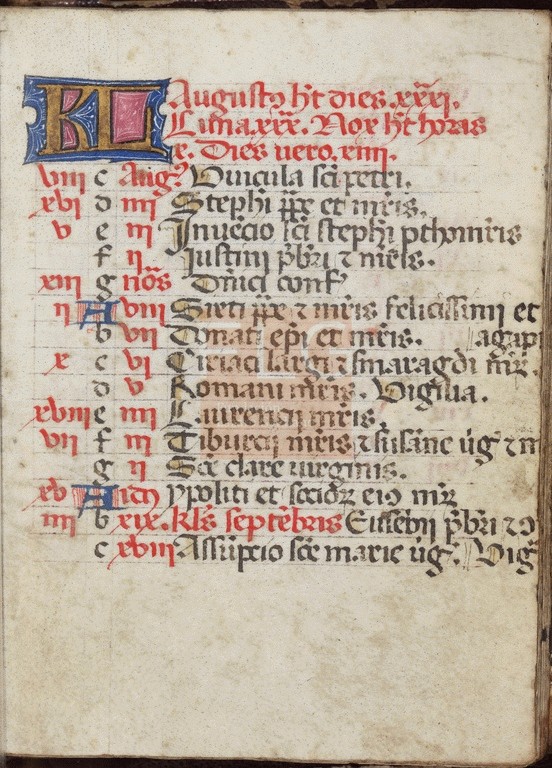 KL Augustꝰ h̄t dies .xxxi.
Luna .xxx. Nox h̄t horas
x. Dies uero .xiiii.
viii c Augꝰ Vincula sc̄i petri.
xvi d iiii Stephi p̄p̄e et mr̄is.
v e iii Inuēcio sc̄i stephi pthomr̄is
f ii Iustini p̄bri ⁊ mr̄is.
xiii g noās Dn̄ici conf
ii A viii Sixti p̄p̄e ⁊ mr̄is felicissimi et
b vii Donati ep̄i et mr̄is. agapi
x c vi Ciriaci largi ⁊ smaragdi mr̄.
d v Romani mr̄is. Vigilia.
xviii e iiii Laurencii mr̄is.
vii f iii Tiburcii mr̄is ⁊ susane ūg ⁊ m
g ii Sc̄e clare uirginis.
xv A idꝰ ypoliti et socioꝝ eiꝰ mr̄
iiii b xix. kl̄s septēbris Eusebii p̄bri ⁊ ꝯ
c xviii Assūpcio sc̄e marie ūg. Vig